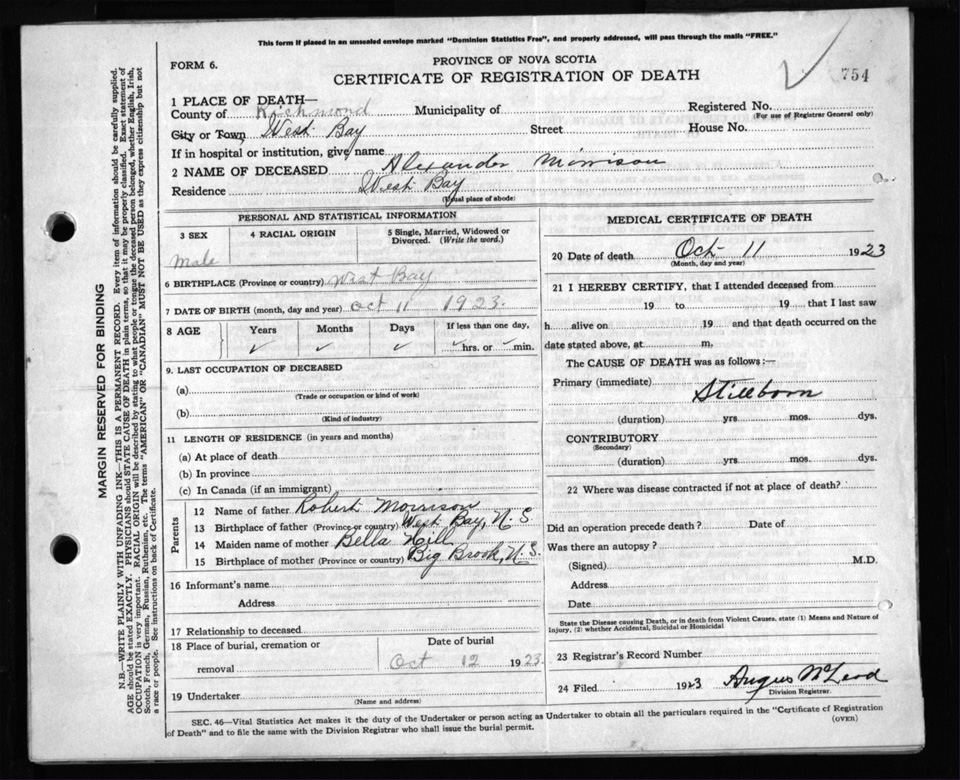 This form if placed in an unsealed envelope marked "Dominion Statistics Free", and properly addressed, will pass through the mails "FREE."
FORM 6.
PROVINCE OF NOVA SCOTIA
CERTIFICATE OF REGISTRATION OF DEATH
754
1 PLACE OF DEATH—
County of Richmond Municipality of Registered No.
(For use of Registrar General only)
City or Town, West Bay Street House No.
If in hospital or institution, give name
2 NAME OF DECEASED Alexander Morrison
Residence West Bay
(Usual place of abode)
PERSONAL AND STATISTICAL INFORMATION
3 SEX 4 RACIAL ORIGIN 5 Single, Married, Widowed or Divorced. (Write the word.)
Male
6 BIRTHPLACE (Province or country) West Bay
7 DATE OF BIRTH (month, day and year) Oct 11 1923.
8 AGE Years Months Days If less than one day,
hrs. or min.
9. LAST OCCUPATION OF DECEASED
(a)
(Trade or occupation or kind of work)
(b)
(Kind of industry)
11 LENGTH OF RESIDENCE (in years and months)
(a) At place of death
(b) In province
(c) In Canada (if an immigrant)
Parents
12 Name of father Robert Morrison
13 Birthplace of father (Province or country) West Bay, N.S.
14 Maiden name of mother Bella Hill
15 Birthplace of mother (Province or country) Big Brook, N.S.
16 Informant's name
Address
17 Relationship to deceased
18 Place of burial, cremation or Date of burial
removal Oct 12 1923.
19 Undertaker
(Name and address)
MEDICAL CERTIFICATE OF DEATH
20 Date of death Oct 11 1923
(Month, day and year)
21 I HEREBY CERTIFY, that I attended deceased from
19 to 19 that I last saw
h alive on 19 and that death occurred on the
date stated above, at m,
The CAUSE OF DEATH was as follows:—
Primary (immediate) Stillborn
(duration) yrs mos. dys.
CONTRIBUTORY
(Secondary)
(duration) yrs mos. dys.
22 Where was disease contracted if not at place of death?
Did an operation precede death? Date of
Was there an autopsy?
(Signed) M.D.
Address
Date
State the Disease causing Death, or in death from Violent Causes, state (1) Means and Nature of
Injury, (2) whether Accidental, Suicidal or Homicidal
23 Registrar's Record Number
24 Filed 1923 Angus McLeod
Division Registrar.
SEC. 46—Vital Statistics Act makes it the duty of the Undertaker or person acting as Undertaker to obtain all the particulars required in the "Certificate of Registration
of Death" and to file the same with the Division Registrar who shall issue the burial permit.
(OVER)
MARGIN RESERVED FOR BINDING
N.B.—WRITE PLAINLY WITH UNFADING INK—THIS IS A PERMANENT RECORD. Every item of information should be carefully supplied.
AGE should be stated EXACTLY. PHYSICIANS should STATE CAUSE OF DEATH in plain terms, so that it may be properly classified. Exact statement of
OCCUPATION is very important. RACIAL ORIGIN will be described by stating to what people or tongue the deceased person belonged, whether English, Irish,
Scotch, French, German, Russian, Ruthenian, etc. The terms "AMERICAN" OR "CANADIAN" MUST NOT BE USED as they express citizenship but not
a race or people. See instructions on back of Certificate.